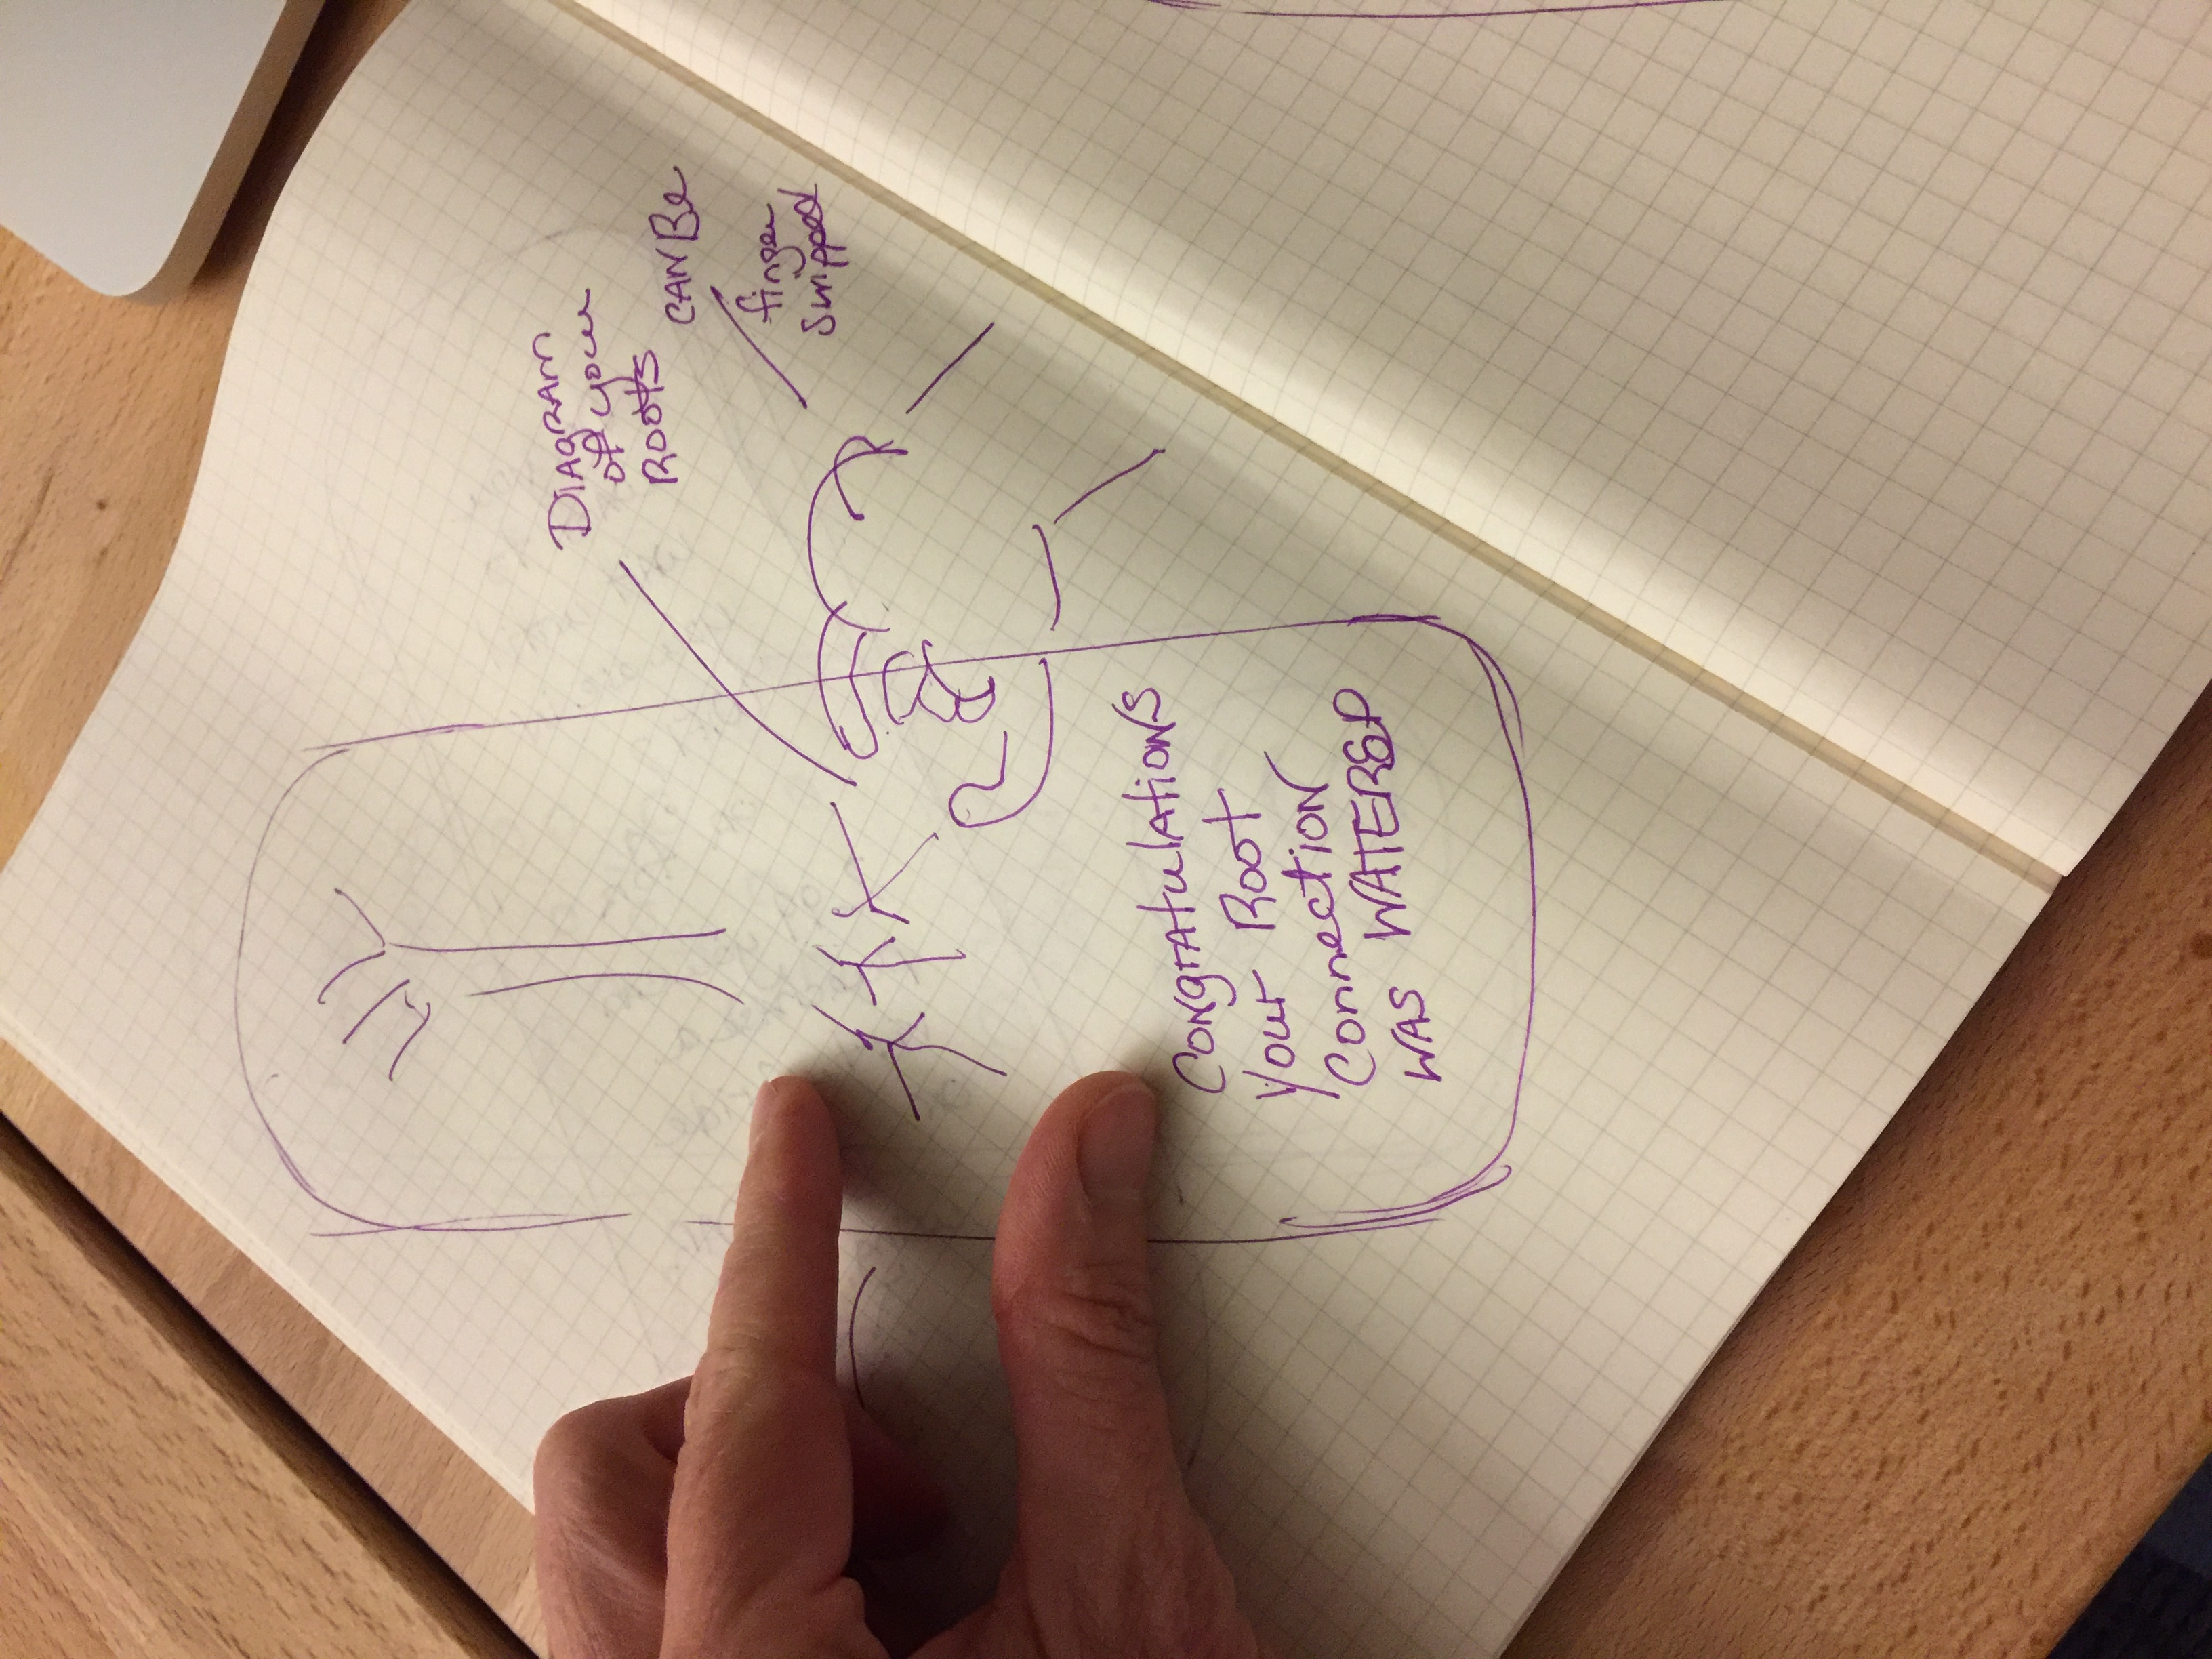 Diagram
of your
Roots
can be
finger
swipped
Congratulations
Your Root
Connection
was WATERED